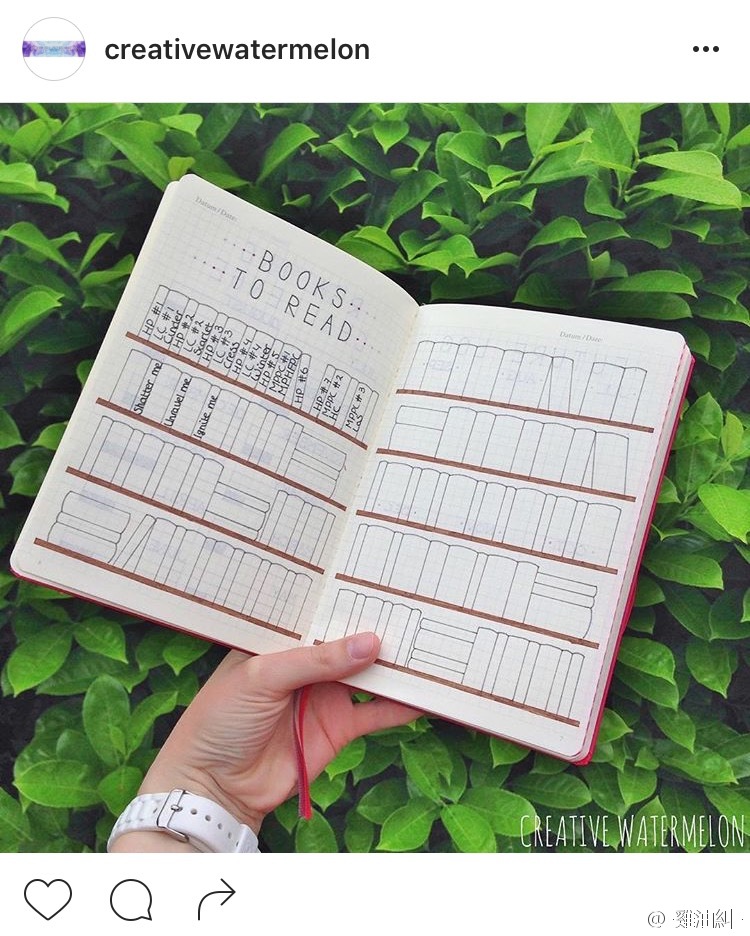 creativewatermelon
Datum / Date:
BOOKS
TO READ
HP #1
LC #1
Cinder
HP #2
LC #2
Scarlet
HP #3
LC #3
Cress
HP #4
LC #4
Winter
HP #5
MPPC #1
MPHFPC
HP #6
HP #7
MPPC #2
HC
MPPC #3
LoS
Shatter me
Unravel me
Ignite me
Datum / Date:
CREATIVE WATERMELON
@·雞油糾·